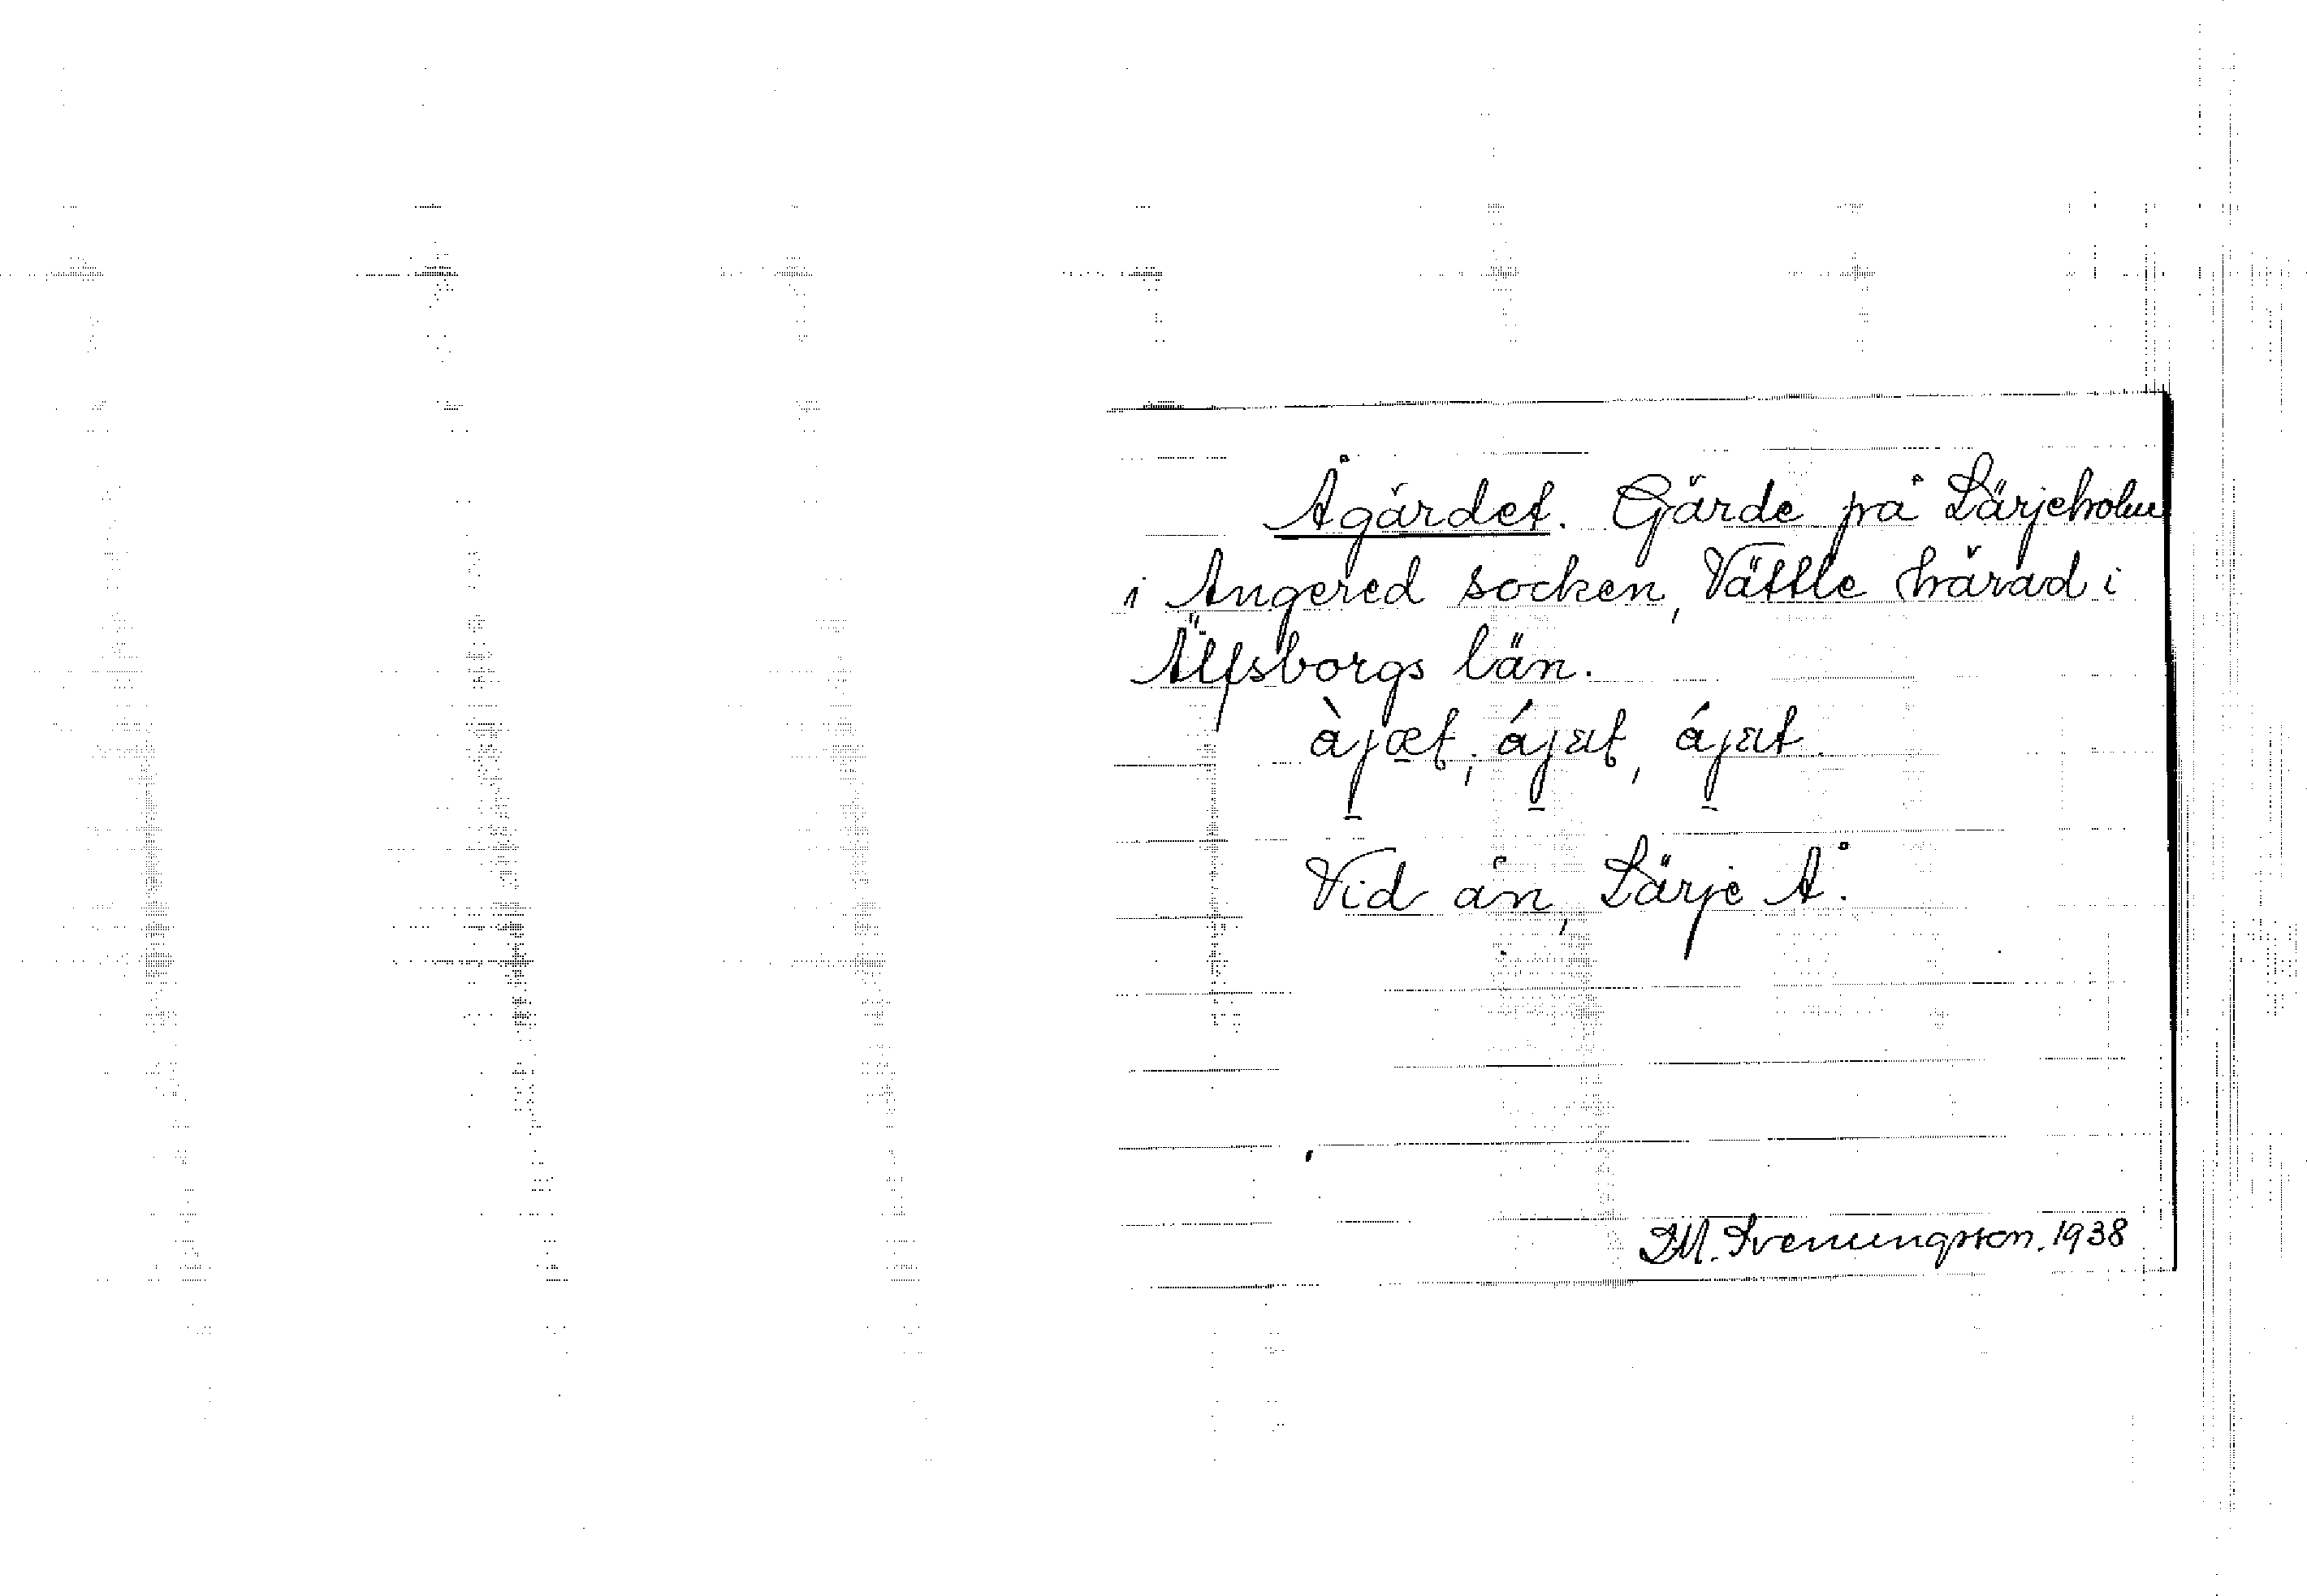 Ågärdet. Gärde på Lärjeholm
i Angered socken, Vättle härad i
Älfsborgs län.
àjæt; ájæt, ájæt.
Vid ån, Lärje Å.
J.M. Svenungsson. 1938